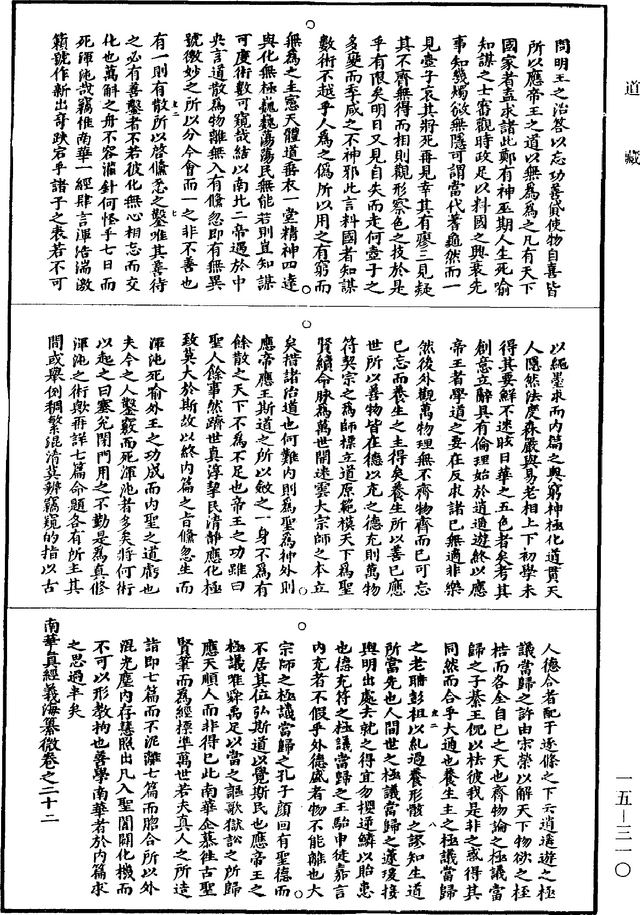 道藏
問明王之治答以忘功善貸使物自喜皆
所以應帝王之道以無為為之凡有天下
國家者盍求諸此鄭有神巫期人生死喻
知謀之士審觀時政足以料國之興衰先
事知幾燭微無隱可謂當代蓍龜然而一
見壺子哀其將死再見幸其有廖三見疑
其不齊無得而相則觀形察色之技於是
乎有限矣明日又見自失而走何壺子之
多變而季咸之不神邪此言料國者知謀
數術不越乎人為之偽所以用之有窮而
無為之主憲天體道垂衣一堂精神四達
與化無極巍巍蕩蕩民無能若則豈知謀
可度術數可窺哉結以南北二帝遇於中
央言道散為物離無入有儵忽即有無異
號微妙之所以分今會而一之非不善也
有一則有散所以啓儵忽之鑿唯其善待
之必有善鑿者不若彼化無心相忘而交
化也萬斛之舟不容漏針何怪乎七日而
死渾沌哉竊惟南華一經肆言渾浩湍激
籟號作新出奇跌宕乎諸子之表若不可
以繩墨求而內篇之奧窮神極化道貫天
人隱然法度森嚴與易老相上下初學未
得其要鮮不迷眩日華之五色者矣考其
創意立辭具有倫理始於逍遙遊終以應
帝王者學道之要在反求諸己無適非樂
然後外觀萬物理無不齊物齊而己可忘
己忘而養生之主得矣養生所以善己應
世所以善物皆在德以充之德充則萬物
符契宗之為師標立道原範模天下為聖
賢續命脉為萬世開迷雲大宗師之本立
矣措諸治道也何難內則為聖為神外則
應帝應王斯道之所以斂之一身不為有
餘散之天下不為不足也帝王之功雖曰
聖人餘事然躋世真淳挈民清靜應化極
致莫大於斯故以終內篇之旨儵忽生而
渾沌死喻外王之功成而內聖之道虧也
夫今之人鑿竅而死渾沌者多矣將何術
以起之曰塞兌閉門用之不勤是為真修
渾沌之術歟再詳七篇命題各有所主其
間或舉例稠繁混淆莫辨竊窺的指以古
人德合者配于逐條之下云逍遙遊之極
議當歸之許由宋榮以解天下物欲之桎
梏而各全自己之天也齊物論之極議當
歸之子綦王倪以祛彼我是非之惑得其
同然而合乎大通也養生主之極議當歸
之老聃彭祖以紀過養形骸之謬知生道
所當先也人間世之極議當歸之蘧瑗接
輿明出處去就之得宜勿攖逆鱗以胎患
也德充符之極議當歸之王駘申徒嘉言
內充若不假乎外德盛者物不能離也大
宗師之極議當歸之孔子顏回有聖德而
不居其位弘斯道以覺斯民也應帝王之
極議唯舜禹足以當之謳歌獄訟之所歸
應天順人而非得已此南華企慕往古聖
賢筆而為經標準萬世若夫真人之所造
詣即七篇而不泥離七篇而脗合所以外
混光塵內存慧照出凡入聖闔闢化機而
不可以形教拘也善學南華者於內篇求
之思過半矣
南華真經義海纂微卷之二十二
一五—三一〇